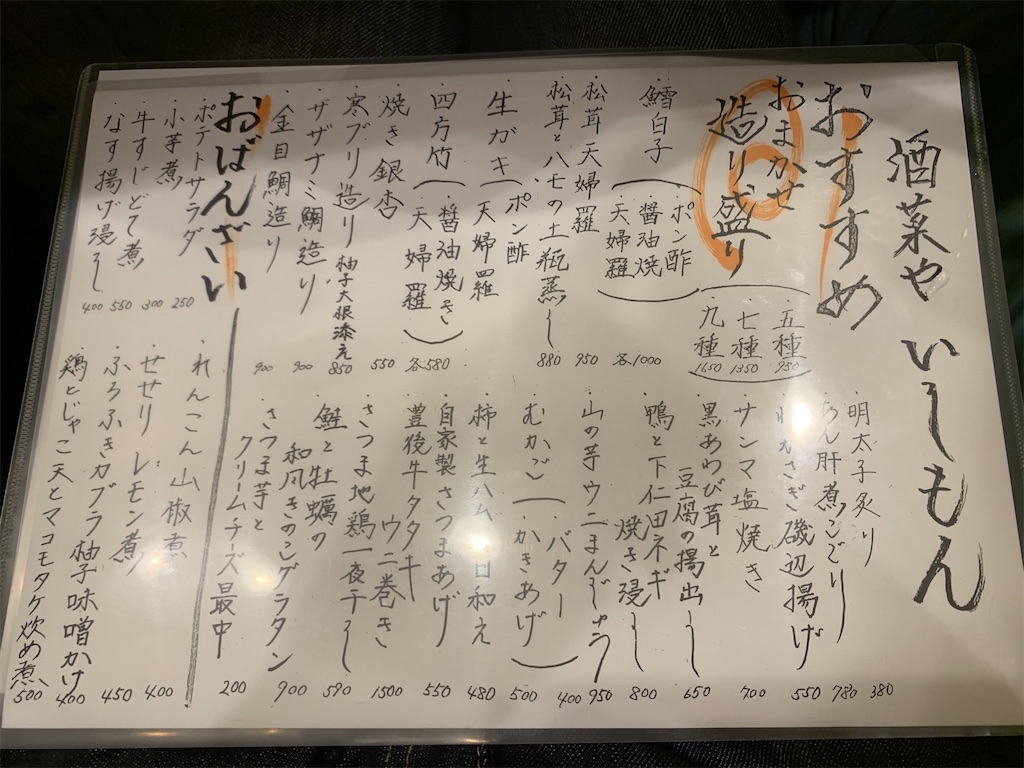 酒菜や いしもん
おすすめ
おまかせ
造り盛り
五種 950
七種 1350
九種 1650
・鱈白子
ポン酢
醤油焼
天婦羅
各1000
・松茸天婦羅 950
・松茸と八モの土瓶蒸し 880
・生ガキ
ポン酢
天婦羅
・四方竹
醤油焼き
天婦羅
各580
・焼き銀杏 550
・寒ブリ造り 柚子大根添え 850
・ザザナミ鯛造り 900
・金目鯛造り 900
・明太子炙り 380
・あん肝煮こごり 780
・わかさぎ磯辺揚げ 550
・サンマ塩焼き 700
・黒あわび茸と
豆腐の揚出し 650
・鴨と下仁田ネギ
焼き浸し 800
・山の芋ウニまんじゅう 950
・むかご
バター 400
かきあげ 500
・柿と生ハム白和え 480
・自家製さつまあげ 550
・豊後牛タタキ
ウニ巻き 1500
・さつま地鶏一夜干し 590
・鮭と牡蠣の
和風きのこグラタン 900
・さつま芋と
クリームチーズ最中 200
おばんざい
・ポテトサラダ 250
・小芋煮 300
・牛すじどて煮 550
・なす揚げ浸し 400
・れんこん山椒煮 400
・せせりレモン煮 450
・ふろふきカブラ柚子味噌かけ 400
・鶏とじゃこ天とマコモタケ炊め煮 500